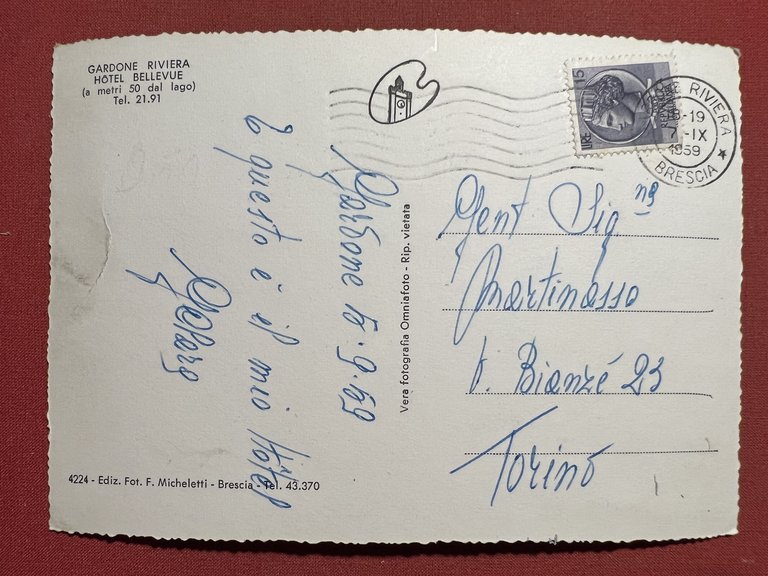 GARDONE RIVIERA
HÔTEL BELLEVUE
(a metri 50 dal lago)
Tel. 21.91
LIRE 15
RIVIERA
-19
-IX
1959
BRESCIA ★
Gardone 15.9.59
E questo è il mio Hôtel
Vera fotografia Omniafoto - Rip. vietata
Gent Sig na
Martinasso
V. Bianzé 23
Torino
4224 - Ediz. Fot. F. Micheletti - Brescia - Tel. 43.370